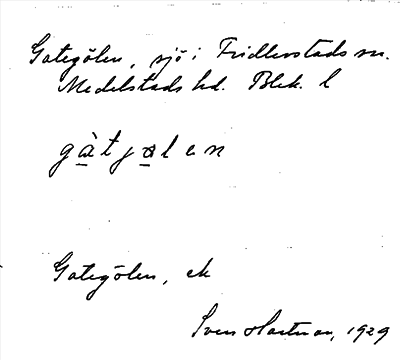 Gategölen, sjö i Fridlevstads sn.
Medelstads hd. Blek. l
gàtjølen
Gategölen, ek
Sven Hartman, 1929